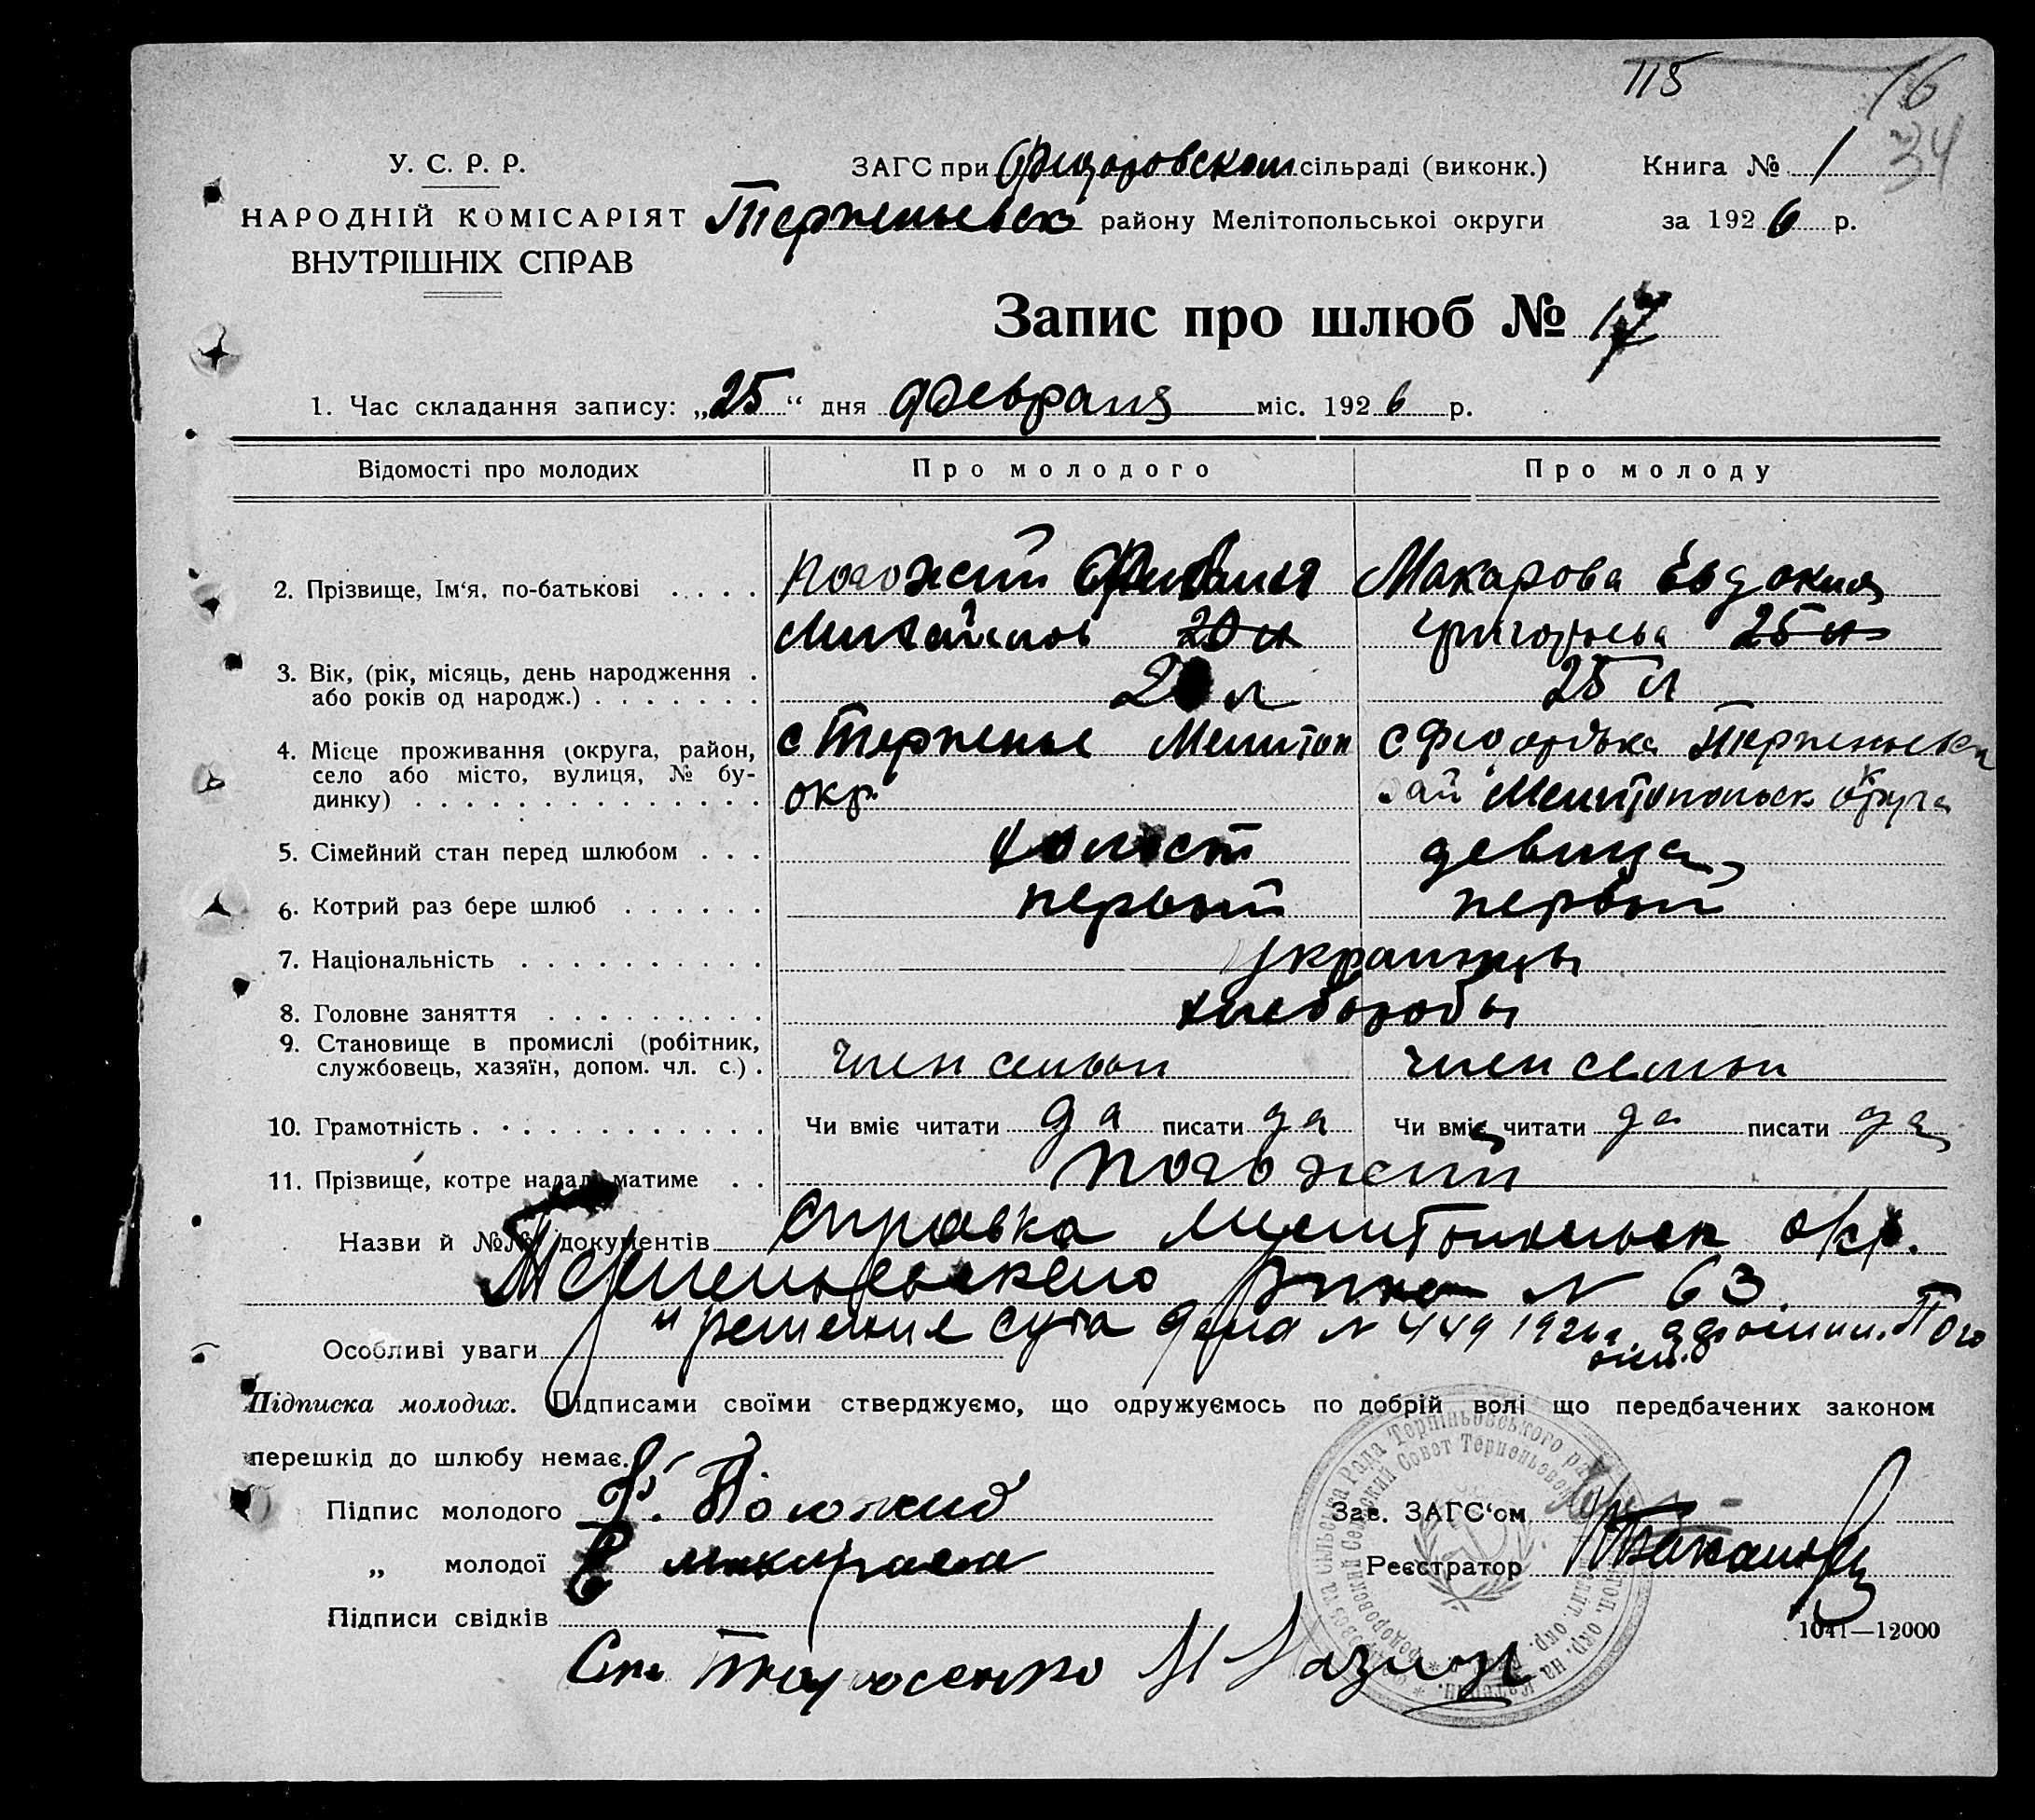 115
16
34
У. С. Р. Р.
НАРОДНІЙ КОМІСАРІЯТ
ВНУТРІШНІХ СПРАВ
ЗАГС при Фидоровском сільраді (виконк.)
Терпеньевско району Мелітопольської округи
Книга № 1
за 1926 р.
Запис про шлюб № 17
1. Час складання запису: „25“ дня февраля міс. 1926 р.
Відомості про молодих
Про молодого
Про молоду
2. Прізвище, Ім‘я, по-батькові . . . .
Погожий
Михайлов 20 л
Макарова Евдокия
Григорьева 25 л
3. Вік, (рік, місяць, день народження .
або років од народж.) . . . . . . .
л
25 л
4. Місце проживання (округа, район,
село або місто, вулиця, № бу-
динку) . . . . . . . . . . . . . .
с Терпенье Мелитоп
окр.
с Терпеньевск
рай Мелитопольск округа
5. Сімейний стан перед шлюбом . . .
холост
девица
6. Котрий раз бере шлюб . . . . . .
первый
первый
7. Національність . . . . . . . . . .
украинцы
8. Головне заняття . . . . . . . . .
хлеборобы
9. Становище в промислі (робітник,
службовець, хазяїн, допом. чл. с.) .
член семьи
член семьи
10. Грамотність . . . . . . . . . . . .
Чи вміє читати да писати да
Чи вміє читати да писати да
11. Прізвище, котре надалі матиме . .
Погожий
Назви й №№ документів Справка Мелитопольск окр.
№ 63.
и решение суда дело № 449 192 г. Пого
Особливі уваги
Підписка молодих. Підписами своїми стверджуємо, що одружуємось по добрій волі що передбачених законом
перешкід до шлюбу немає.
Підпис молодого Ф. Погожий
„ молодої Е Макарова
Підписи свідків
Тарасенко
Зав. ЗАГС‘ом
Реєстратор
1041—12000